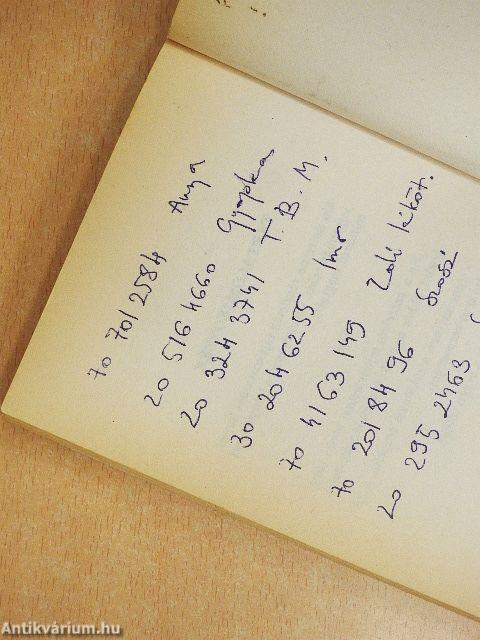 70 701 2584 Anya
20 516 4660 Gyopka
20 324 3741 T. B. M.
30 204 6255 Imr
70 4163 149 Zoli kiköt.
70 201 84 96 Szöszi
20 295 2463
Antikvárium.hu